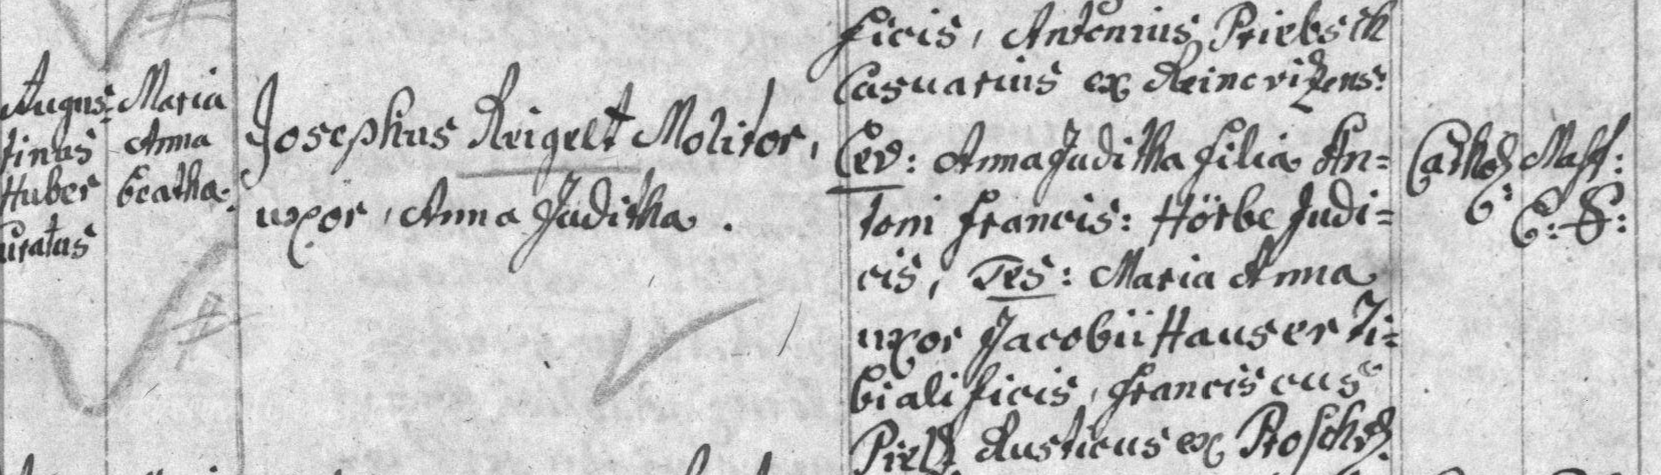 Augus:
tinus
Huber
Curatus
Maria
Anna
Beatha.
Josephus Reigelt Molitor,
uxor, Anna Juditha.
ficis, Antonius Priebsch
Casuarius ex Reinovizens:
Lev: Anna Juditha filia An=
toni Francis: Hörbe Judi=
cis, Tes: Maria Anna
uxor Jacobii Hauser Ti=
bialificis, Franciscus
Rusticus ex
Cathol: